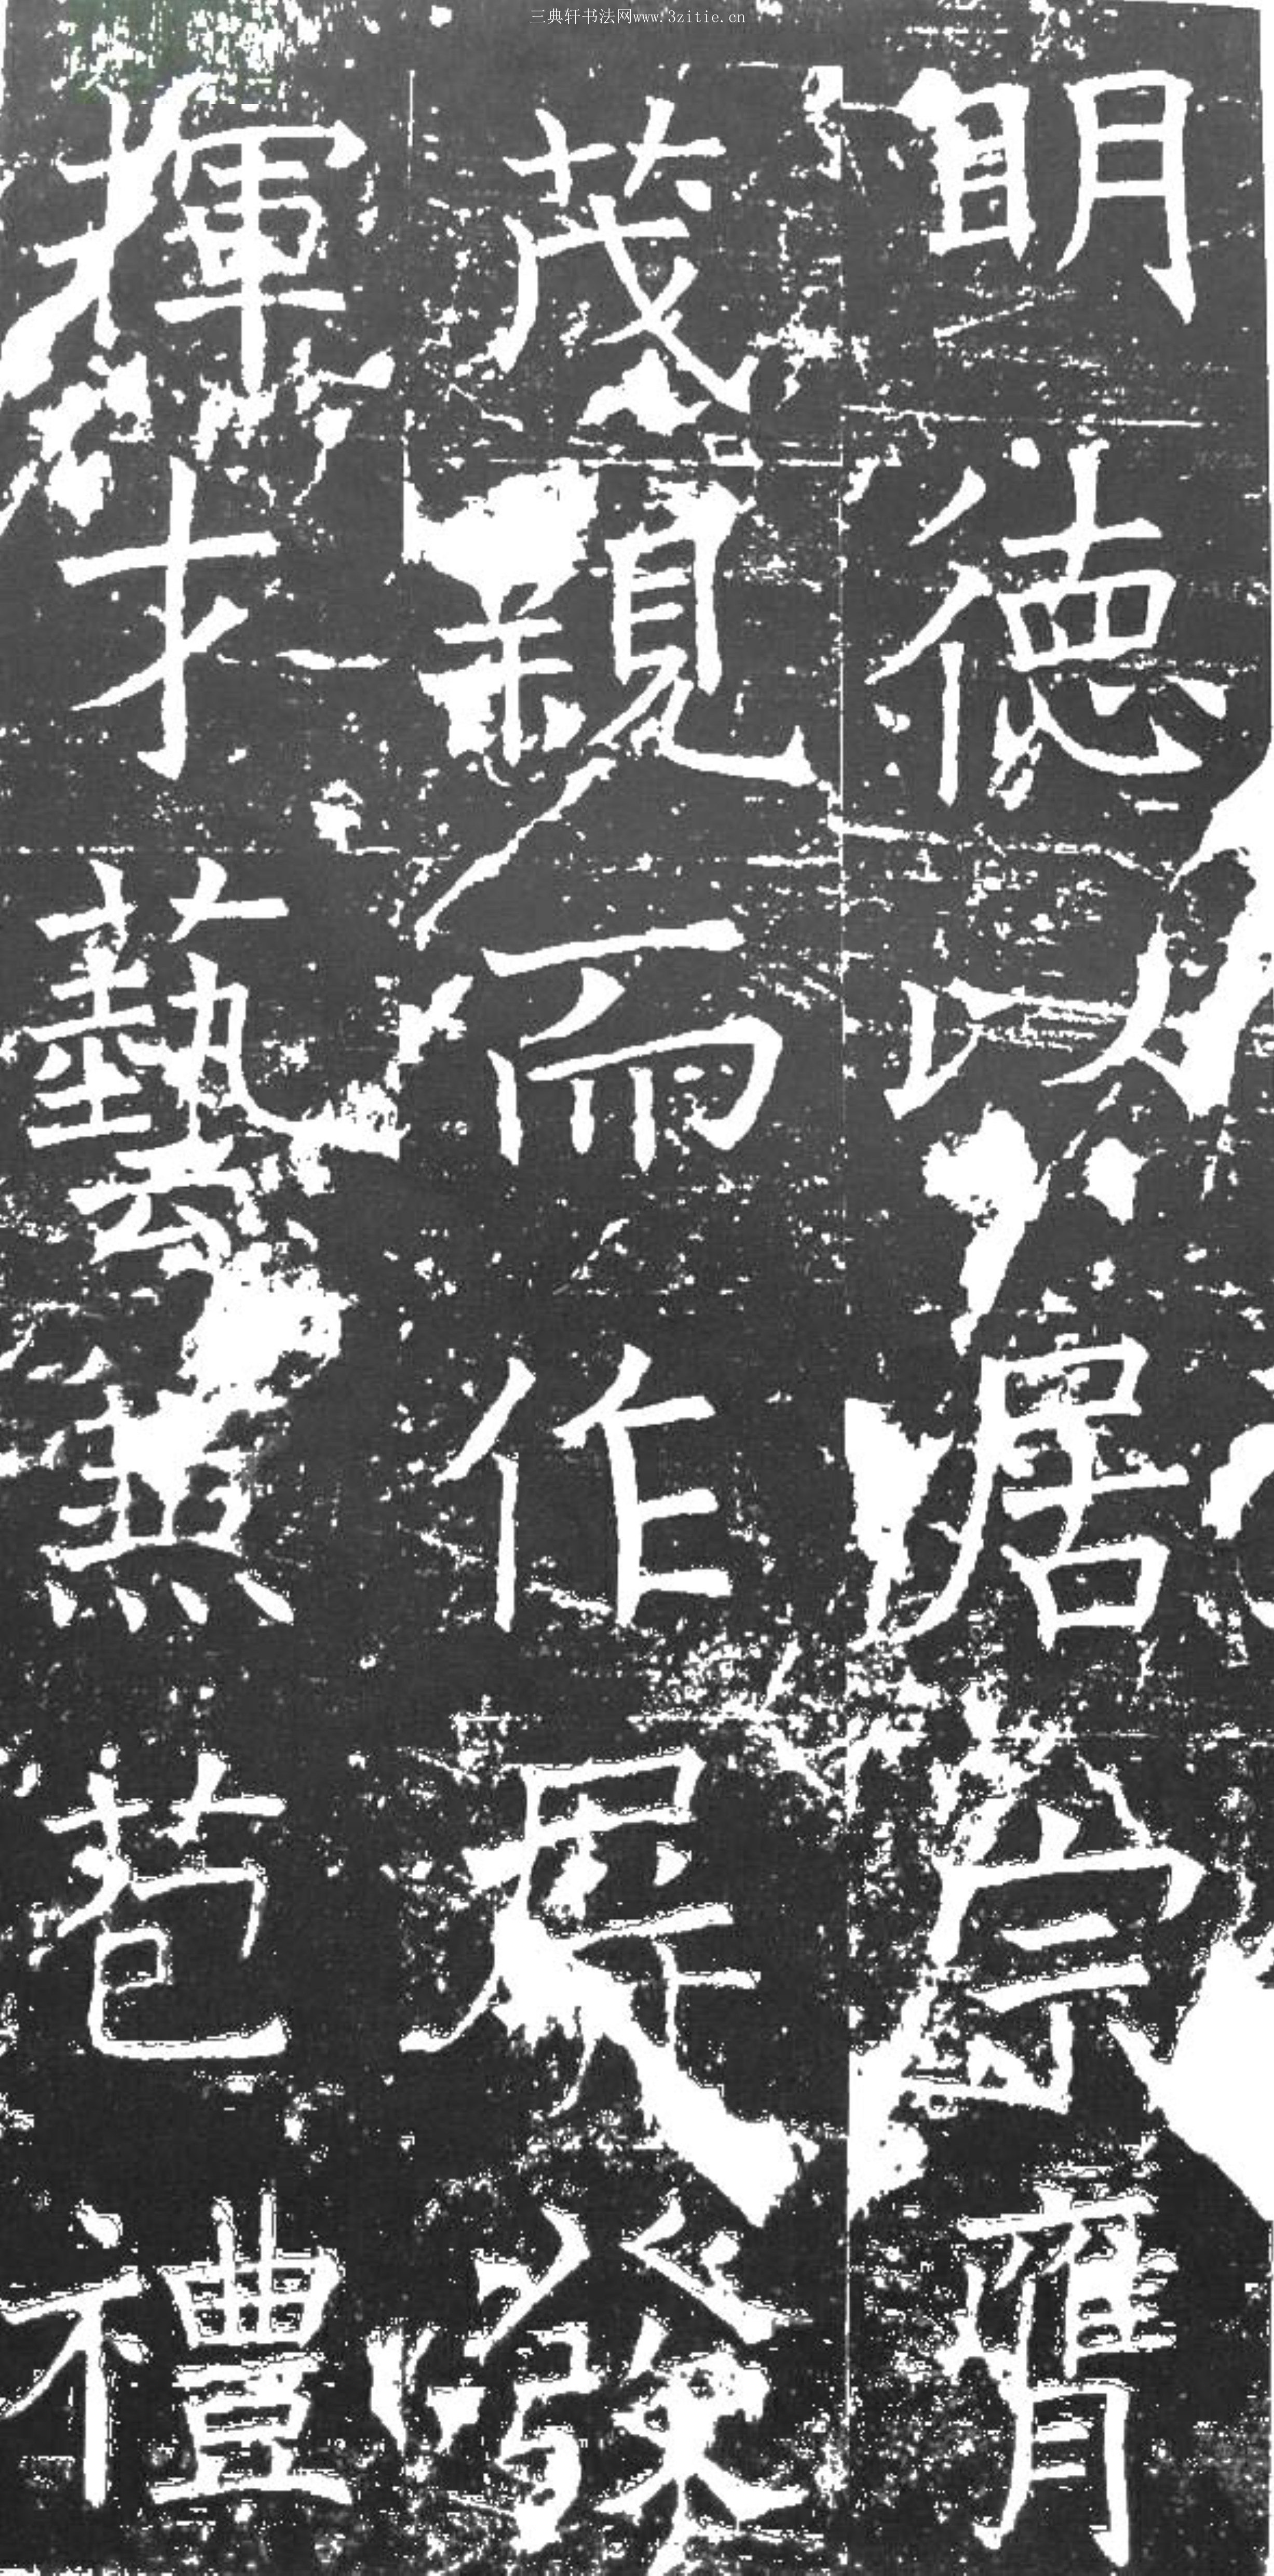 三典轩书法网www.3zitie.cn
明德以居宗膺
茂親而作屏發
揮才藝兼苞禮